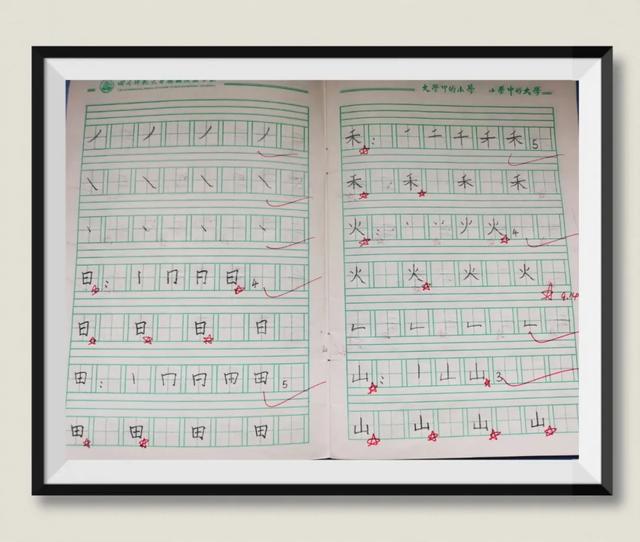 大学中的小学 小学中的大学
丿 丿 丿 丿
㇏ ㇏ ㇏ ㇏
丶 丶 丶 丶
日: 丨 冂 月 日 4
日 日 日 日
田: 丨 冂 冂 田 5
田 田 田 田
禾: 一 二 千 禾 5
禾 禾 禾 禾
火: 丶 丷 火 火 4
火 火 火 火
9.14
𠃊 𠃊 𠃊 𠃊
山: 丨 山 山 3
山 山 山 山